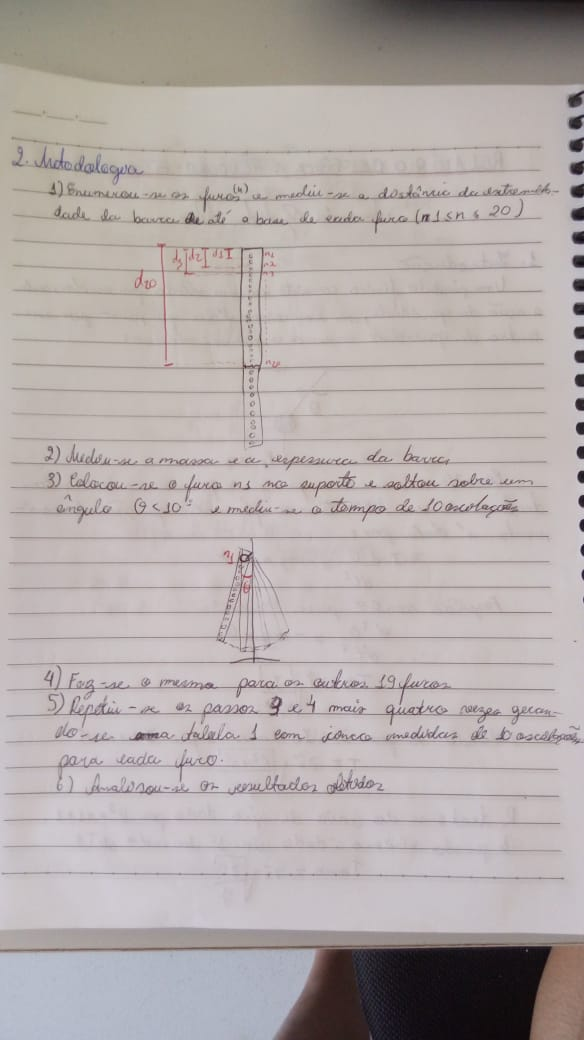 2. Metodologia
1) Enumerou-se os furos (n) e mediu-se a distância da extremi-
dade da barra até a base de cada furo (n 1 ≤ n ≤ 20)
d3 d2 d1 n1
n2
n3
d20
n20
2) Mediu-se a massa e a espessura da barra
3) Colocou-se o furo n1 no suporte e soltou sobre um
ângulo θ < 10° e mediu-se o tempo de 10 oscilações
n1
θ
4) Fez-se o mesmo para os outros 19 furos
5) Repetiu-se os passos 3 e 4 mais quatro vezes geran-
do-se uma tabela 1 com cinco medidas de 10 oscilações
para cada furo.
6) Analisou-se os resultados obtidos